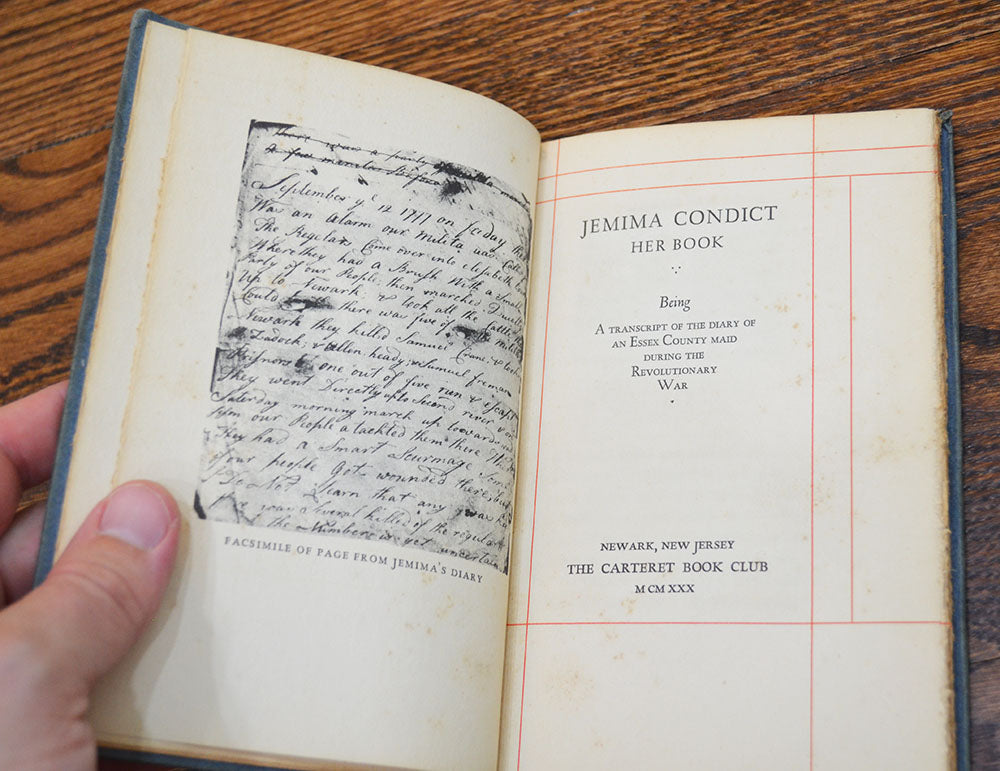 there was a party
A few minutes
September ye 12 1777 on fryday there
Was an Alarm our Militia was Call
The Regulars Come over into elesebeth town
Where they had a Brush With a Small
Party of our People; then marched Quietly
Up to Newark; & took all the Cattle they
Could there was five of the militia
Newark they killed Samuel Crane, & took
Zadock & Allen heady & Samuel freman
Prisnors one out of five run & escapt
They went Directly up to Second river & on
Saturday morning march up towards
from our People atackted them there When
They had a Smart Scurmage Some
of our people Got wounded there; but
I Do Not Learn that any was
there was Several killed of the regulars
the Number is yet uncertain
FACSIMILE OF PAGE FROM JEMIMA'S DIARY
JEMIMA CONDICT
HER BOOK
Being
A TRANSCRIPT OF THE DIARY OF
AN ESSEX COUNTY MAID
DURING THE
REVOLUTIONARY
WAR
NEWARK, NEW JERSEY
THE CARTERET BOOK CLUB
MCMXXX